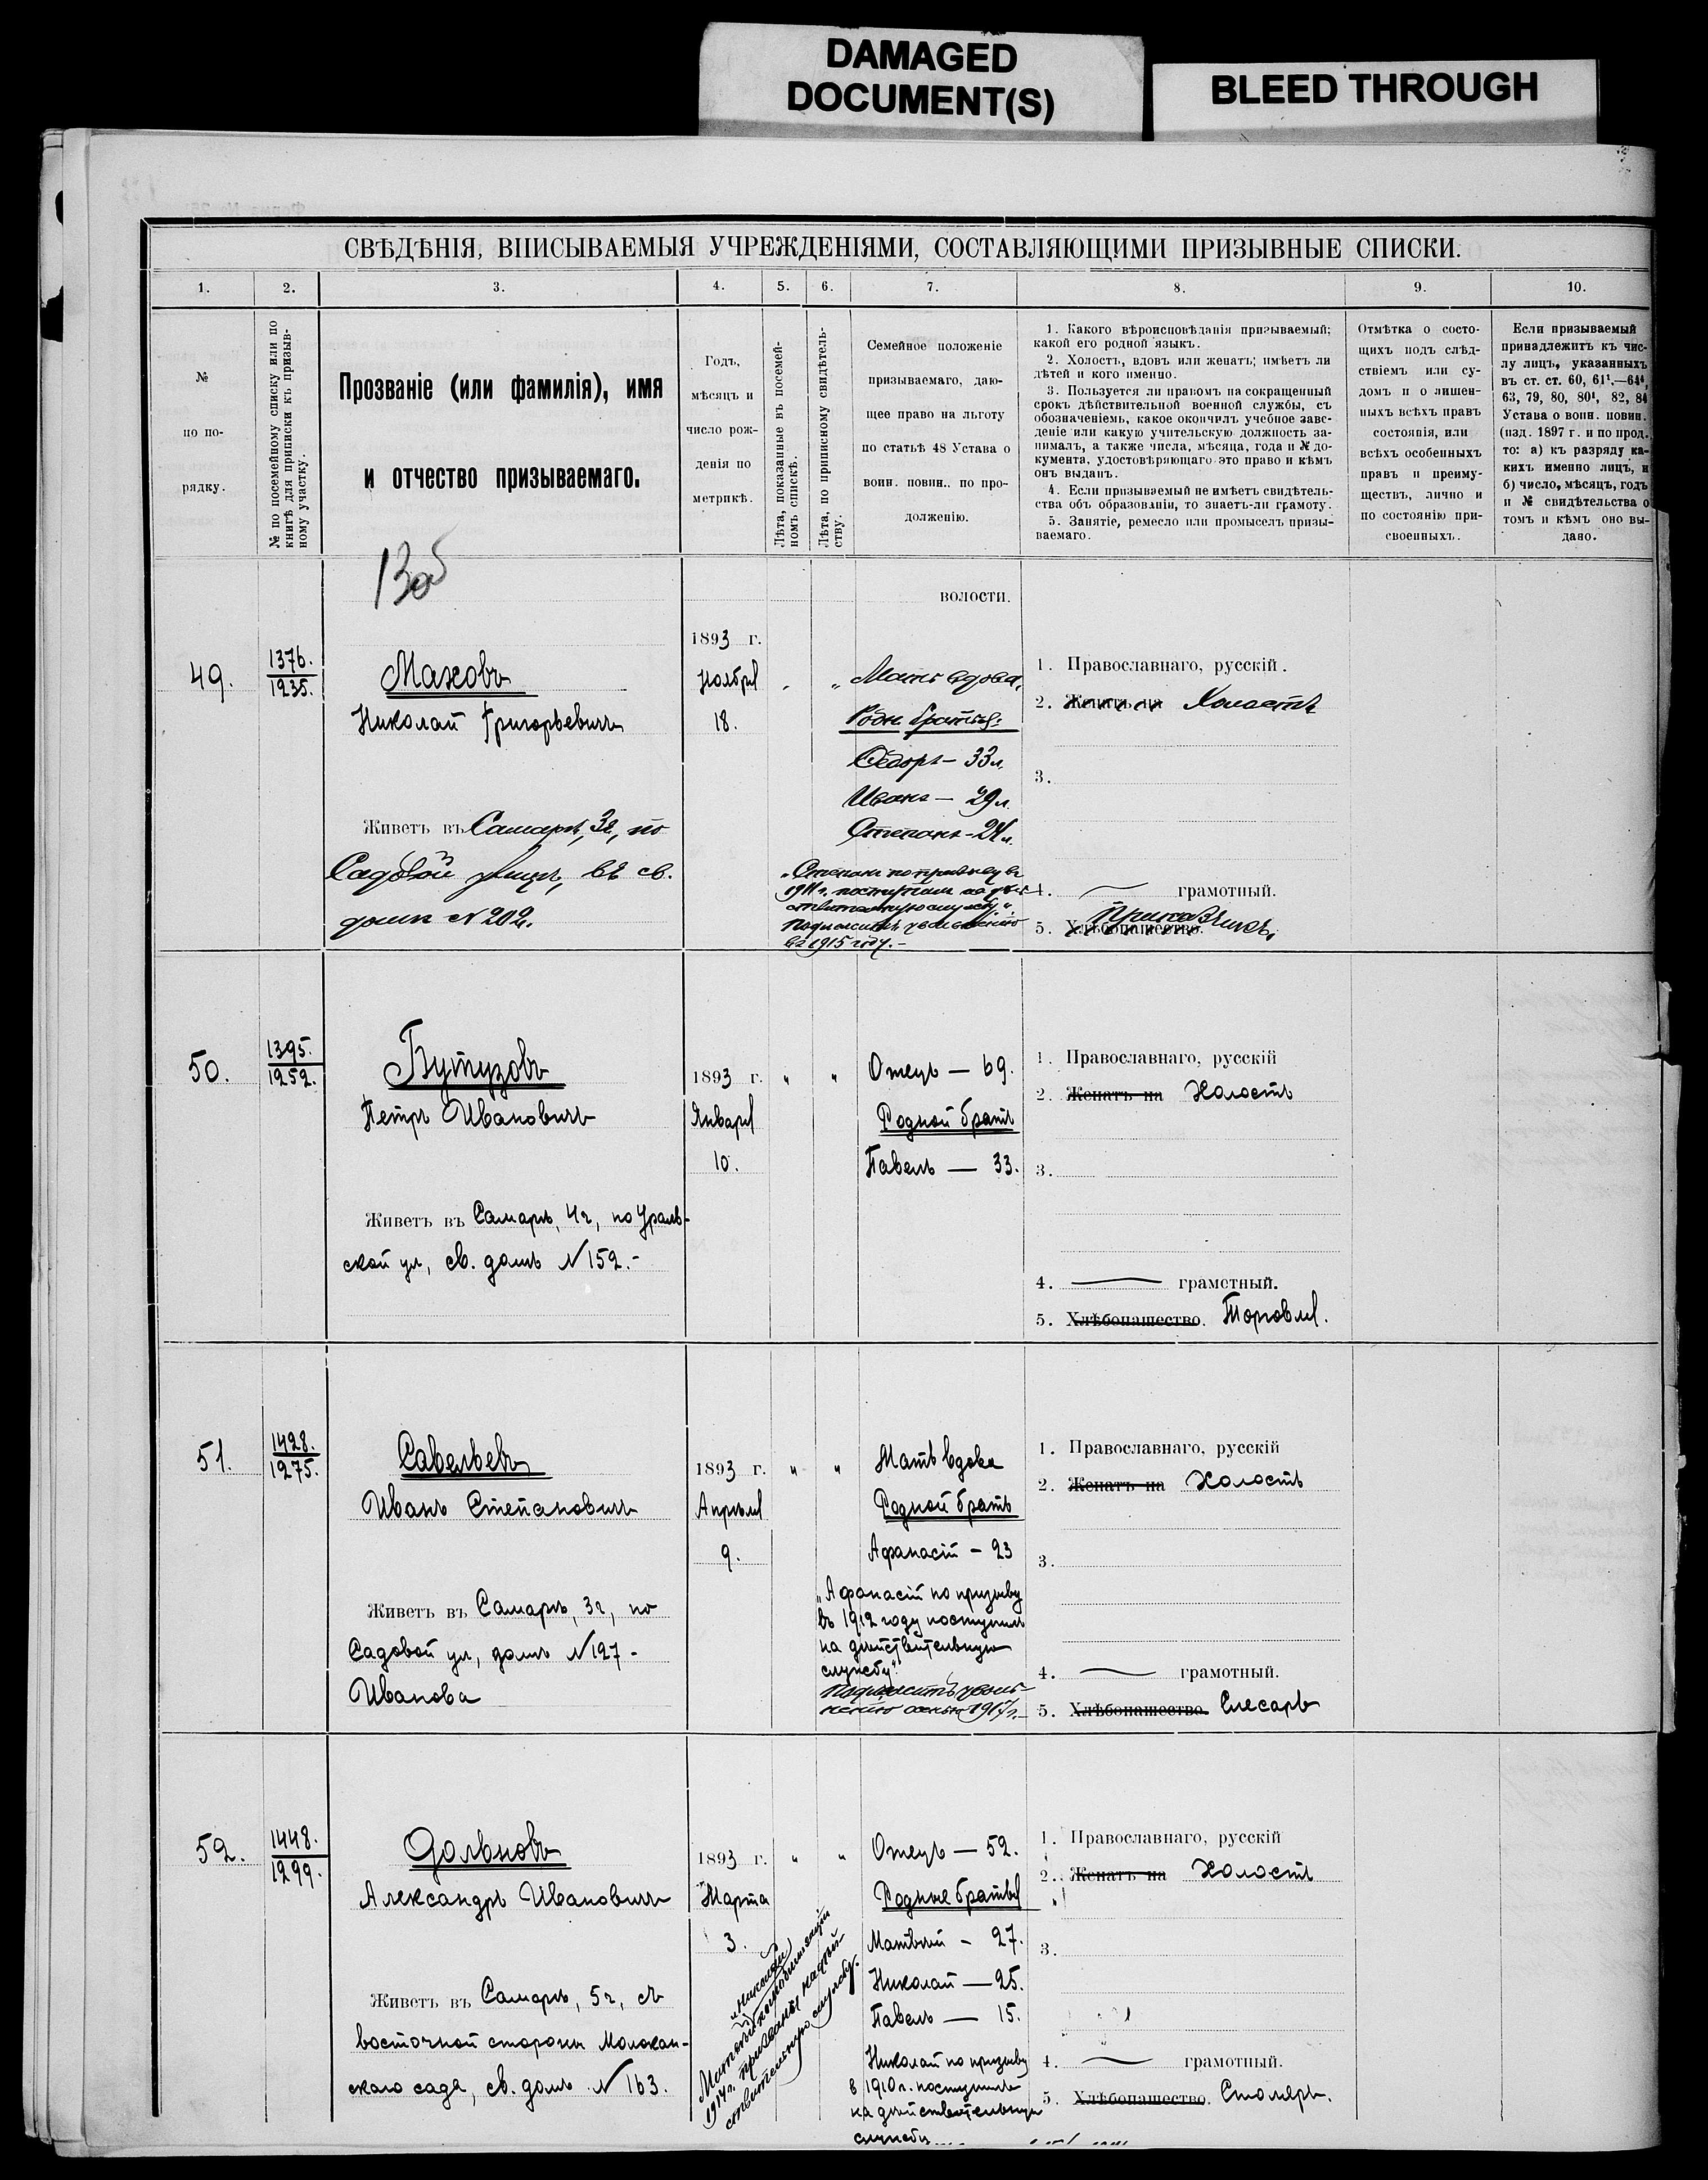 DAMAGED
DOCUMENT(S)
BLEED THROUGH
СВѢДѢНІЯ, ВПИСЫВАЕМЫЯ УЧРЕЖДЕНІЯМИ, СОСТАВЛЯЮЩИМИ ПРИЗЫВНЫЕ СПИСКИ.
1. 2. 3. 4. 5. 6. 7. 8. 9. 10.
№
по по-
рядку.
№ по посемейному списку или по
книгѣ для приписки къ призыв-
ному участку.
Прозваніе (или фамилія), имя
и отчество призываемаго.
Годъ,
мѣсяцъ и
число рож-
денія по
метрикѣ.
Лѣта, показанные въ посемей-
номъ спискѣ.
Лѣта, по приписному свидѣтель-
ству.
Семейное положеніе
призываемаго, даю-
щее право на льготу
по статьѣ 48 Устава о
воин. повин.. по про-
долженію.
1. Какого вѣроисповѣданія призываемый;
какой его родной языкъ.
2. Холостъ, вдовъ или женатъ; имѣетъ ли
дѣтей и кого именно.
3. Пользуется ли правомъ на сокращенный
срокъ дѣйствительной военной службы, съ
обозначеніемъ, какое окончилъ учебное заве-
деніе или какую учительскую должность за-
нималъ, а также числа, мѣсяца, года и № до-
кумента, удостовѣряющаго это право и кѣмъ
онъ выданъ.
4. Если призываемый не имѣетъ свидѣтель-
ства объ образованіи, то знаетъ-ли грамоту.
5. Занятіе, ремесло или промыселъ призы-
ваемаго.
Отмѣтка о состо-
щихъ подъ слѣд-
ствіемъ или су-
домъ и о лишен-
ныхъ всѣхъ правъ
состоянія, или
всѣхъ особенныхъ
правъ и преиму-
ществъ, лично и
по состоянію при-
своенныхъ.
Если призываемый
принадлежитъ къ чис-
лу лицъ, указанныхъ
въ ст. ст. 60, 61¹,—64⁴,
63, 79, 80, 80¹, 82, 84
Устава о воин. повин.
(изд. 1897 г. и по прод.
то: а) къ разряду ка-
кихъ именно лицъ, и
б) число, мѣсяцъ, годъ
и № свидѣтельства о
томъ и кѣмъ оно вы-
дано.
13об
волости.
49.
1376.
1235.
Маховъ
Николай Григорьевичъ
Живетъ въ Самарѣ, 3ч, по
Садовой улицѣ, въ св.
домѣ №202.
1893 г.
Ноября
18.
" Мать вдова.
Родн. братья:
Ѳедоръ — 33л.
Иванъ — 29л.
Степанъ - 24л.
„Степанъ по призыву въ
1911 г. поступилъ на дѣй-
ствительную службу"
Подлежитъ увольненію
въ 1915 году. -
1. Православнаго, русскій.
2. Женатъ на Холостъ
3.
4. грамотный.
5. Хлѣбопашество. Приказчикъ.
50.
1395.
1252.
Бутузовъ
Петръ Ивановичъ
Живетъ въ Самарѣ, 4ч, по Ураль-
ской ул, св. домъ №152.-
1893 г.
Января
10.
" "
Отецъ — 69.
Родной братъ
Павелъ — 33.
1. Православнаго, русскій
2. Женатъ на Холостъ
3.
4. грамотный.
5. Хлѣбопашество. Торговля.
51.
1428.
1275.
Савельевъ
Иванъ Степановичъ
Живетъ въ Самарѣ, 3ч, по
Садовой ул, домъ №127 -
Иванова
1893 г.
Апрѣля
9.
" "
Мать вдова
Родной братъ
Афанасій - 23
„Афанасій по призыву
въ 1912 году поступилъ
на дѣйствительную
службу"
Подлежитъ уволь-
ненію осенью 1917 г.
1. Православнаго, русскій
2. Женатъ на Холостъ
3.
4. грамотный.
5. Хлѣбопашество. Слесарь
52.
1448.
1299.
Дольновъ
Александръ Ивановичъ
Живетъ въ Самарѣ, 5ч, съ
восточной стороны Молокан-
скаго сада, св. домъ №163.
1893 г.
Марта
3.
" "
Отецъ — 52.
Родные братья
Матвѣй - 27.
Николай — 25.
Павелъ — 15.
Николай по призыву
в 1910 г. поступилъ
на дѣйствительную
службу
1. Православнаго, русскій
2. Женатъ на Холостъ
3.
4. грамотный.
5. Хлѣбопашество. Столяръ.